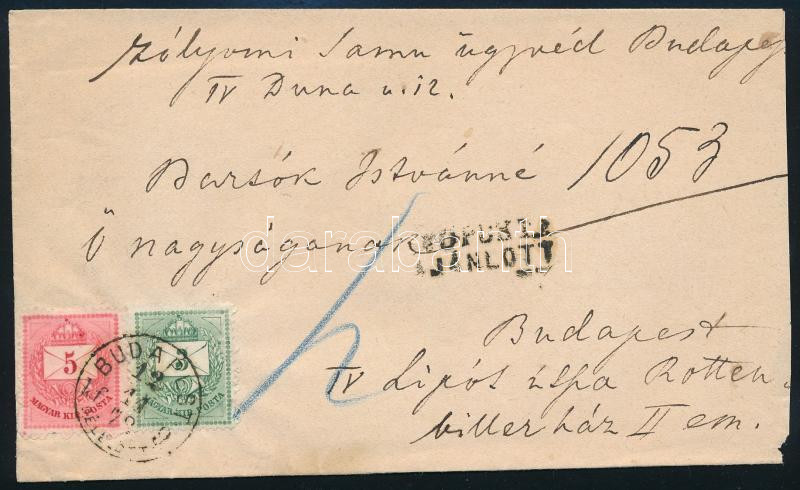 Zólyomi Samu ügyvéd Budapes
IV Duna u. 12.
Barsók Istvánné 1053
Ő nagyságának
AJÁNLOTT
Budapest
IV Lipót útsza Rotten-
billerház II em.
5
MAGYAR KIR. POSTA
3
MAGYAR KIR. POSTA
BUDAPEST
darabanth